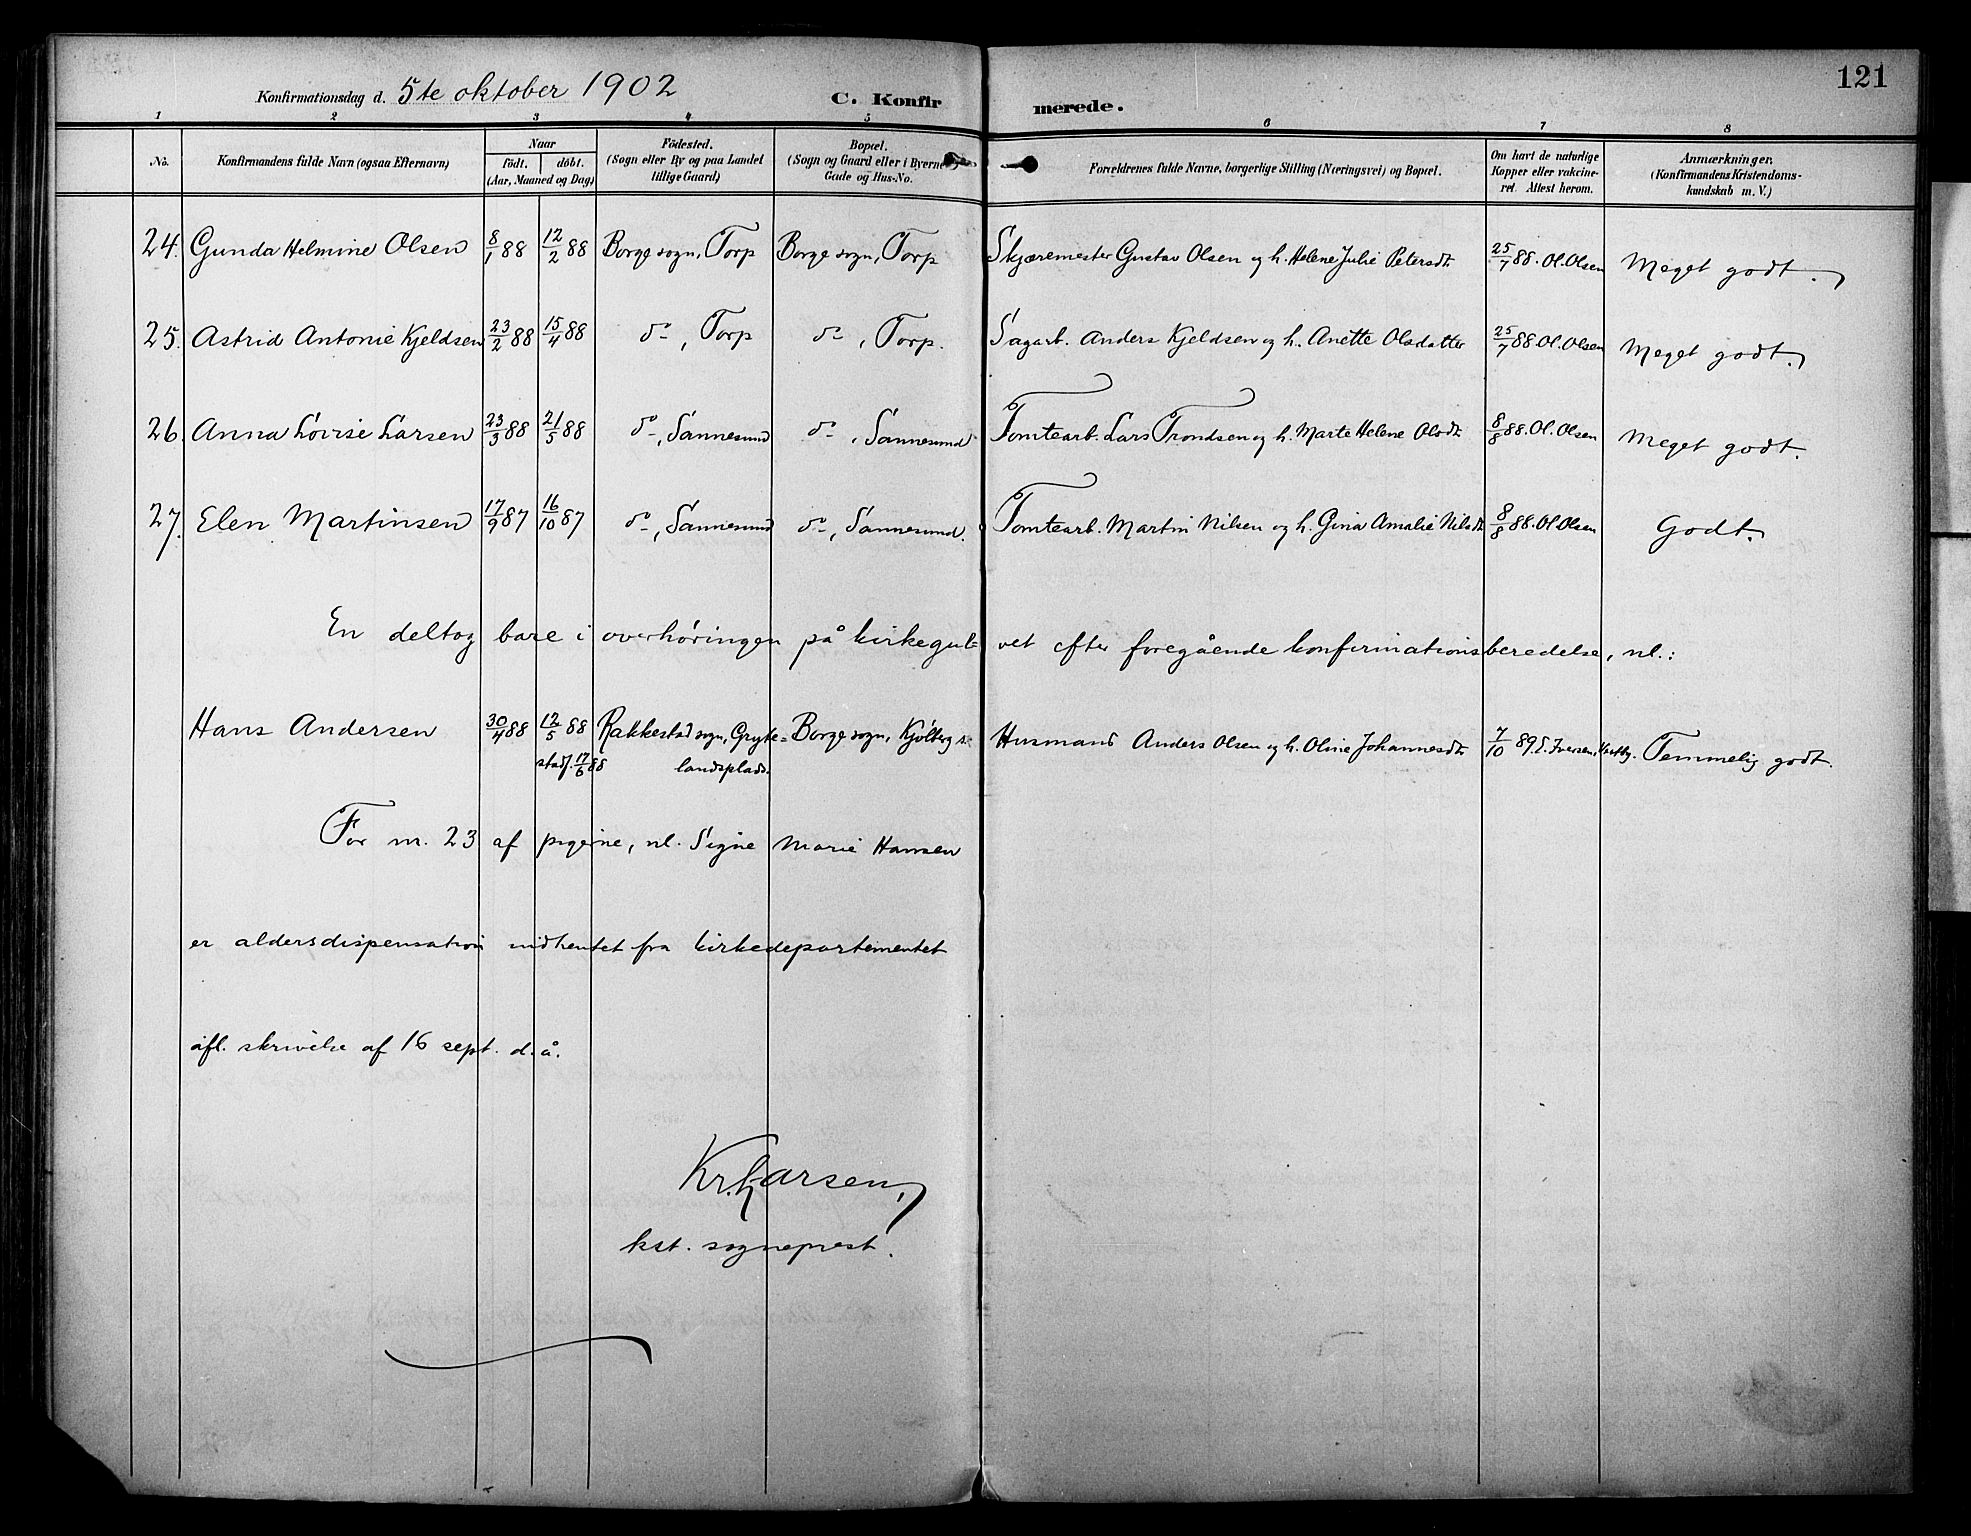 121
Konfirmationsdag d. 5te oktober 1902 C. Konfirmerede.
1 2 3 4 5 6 7 8
No. Konfirmandens fulde Navn (ogsaa Efternavn) Naar födt. döbt. (Aar, Maaned og Dag) Födested. (Sogn eller By og paa Landet tillige Gaard) Bopæl. (Sogn og Gaard eller i Byerne Gade og Hus-No. Forældrenes fulde Navne, borgerlige Stilling (Næringsvei) og Bopæl. Om havt de naturlige Kopper eller vakcineret. Attest herom. Anmærkninger. (Konfirmandens Kristendomskundskab m. V.)
24. Gunda Helmine Olsen 8/1 88 12/2 88 Borge sogn, Torp Borge sogn, Torp Skjæremester Gustav Olsen og h. Helene Julie Petersdt. 25/7 88. Ol. Olsen Meget godt.
25. Astrid Antonie Kjeldsen 23/2 88 15/4 88 do, Torp do, Torp. Sagarb. Anders Kjeldsen og h. Anette Olsdatter 25/7 88. Ol. Olsen Meget godt.
26. Anna Lovise Larsen 23/3 88 21/5 88 do, Sannesund do, Sannesund Tomtearb. Lars Trondsen og h. Marte Helene Olsdt. 8/8 88. Ol. Olsen Meget godt.
27. Elen Martinsen 17/9 87 16/10 87 do, Sannesund do, Sannesund. Tomtearb. Martin Nilsen og h. Gina Amalie Nilsdt. 8/8 88. Ol. Olsen Godt.
En deltog bare i overhøringen på kirkegulvet efter foregående konfirmationsberedelse, nl.:
Hans Andersen 30/4 88 12/5 88 Rakkestad sogn, Gryte= Borge sogn, Kjölberg Husmand Anders Olsen og h. Oline Johannesdt. 7/10 89. Iversen, Temmelig godt.
stadf. 17/6 88 landsplads.
For nr. 23 af pigerne, nl. Signe Marie Hansen
er aldersdispensation indhentet fra kirkedepartementet
ifl. skrivelse af 16 sept. d. å.
Kr. Larsen,
kst. sogneprest.